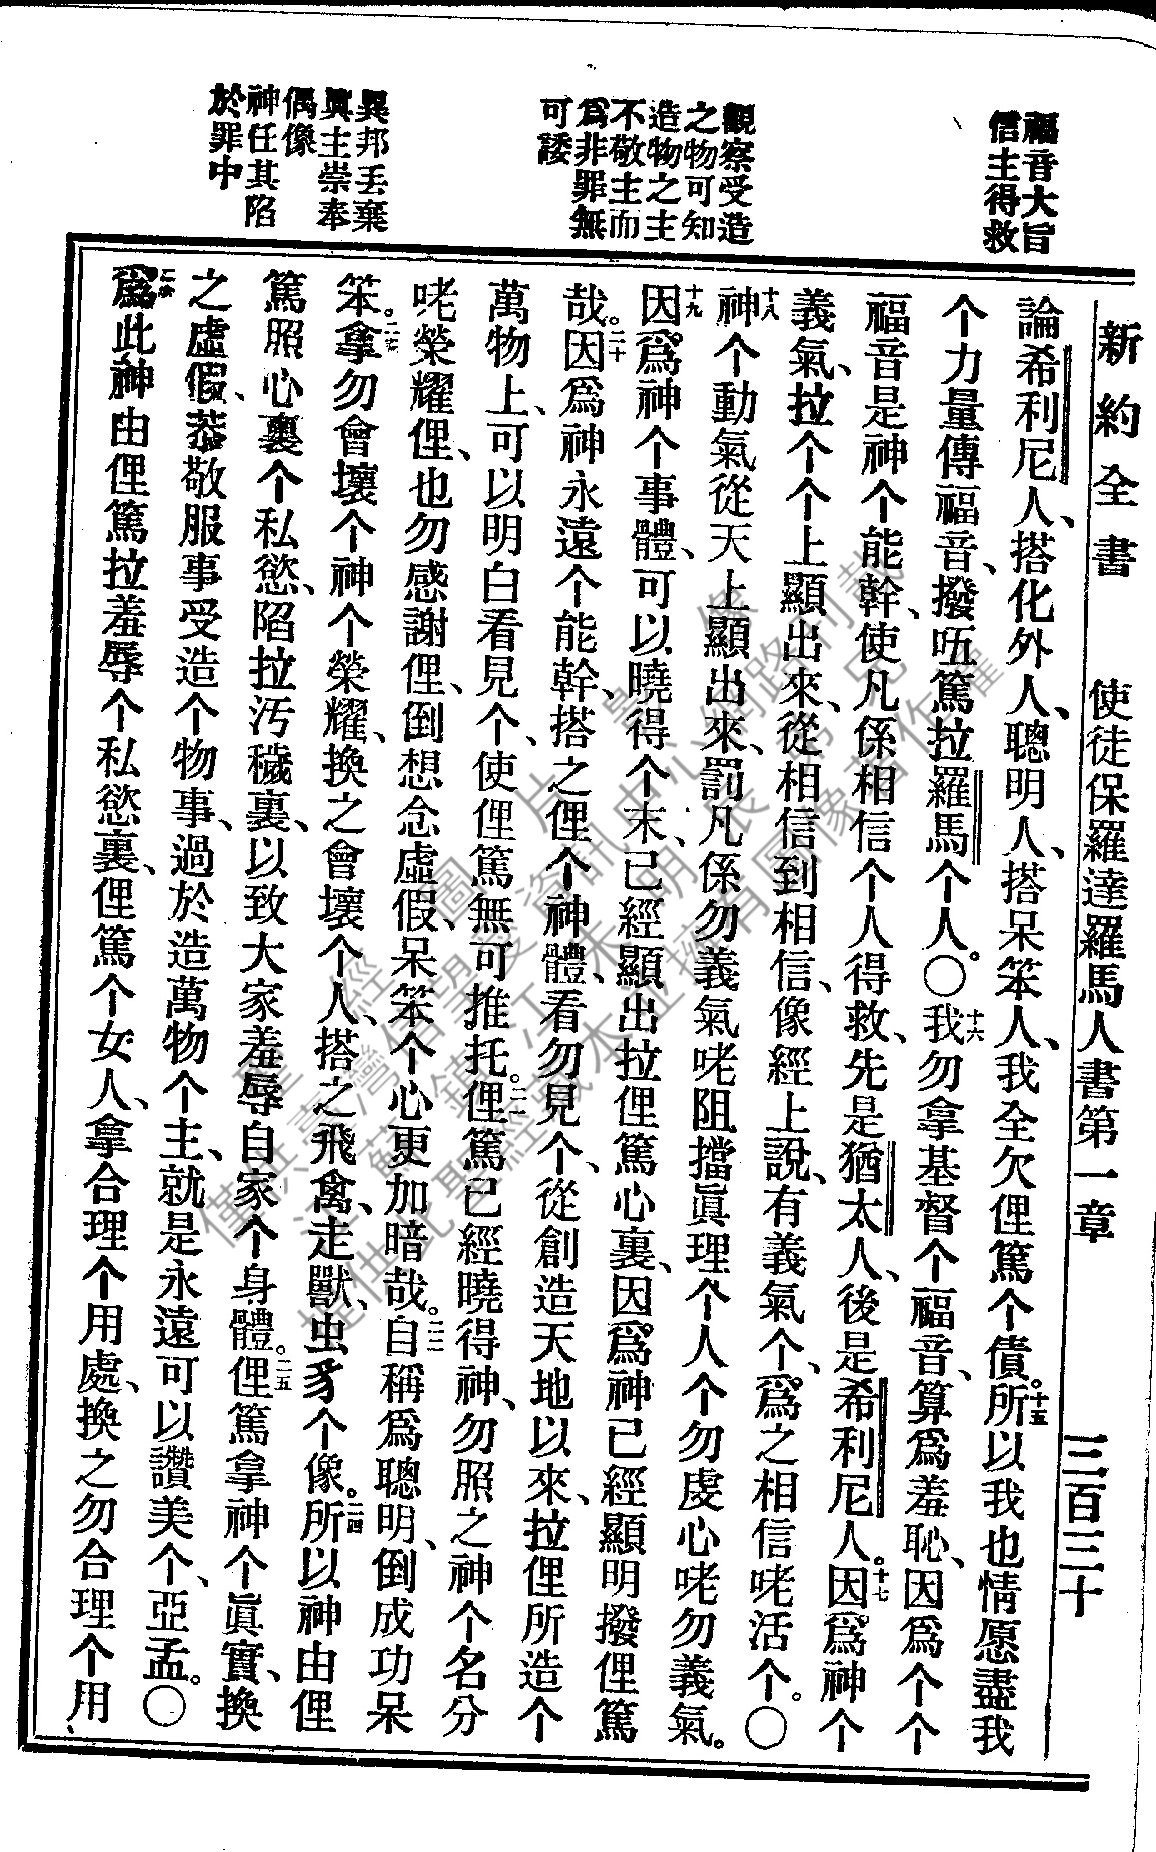 新約全書　使徒保羅達羅馬人書第一章　三百三十
福音大旨
信主得救
觀察受造
之物可知
造物之主
不敬主而
爲非罪無
可諉
異邦丟棄
眞主崇奉
偶像
神任其陷
於罪中
論希利尼人、搭化外人、聰明人、搭呆笨人、我全欠俚篤个債。十五所以我也情愿盡我
个力量傳福音、撥唔篤拉羅馬个人。〇十六我勿拿基督个福音、算爲羞恥、因爲个个
福音是神个能幹、使凡係相信个人得救、先是猶太人、後是希利尼人。十七因爲神个
義氣、拉个个上顯出來、從相信到相信、像經上說、有義氣个、爲之相信咾活个。〇
十八神个動氣從天上顯出來、罰凡係勿義氣咾阻擋眞理个人个勿虔心咾勿義氣。
十九因爲神个事體、可以曉得个末、已經顯出拉俚篤心裏、因爲神已經顯明撥俚篤
哉。二十因爲神永遠个能幹、搭之俚个神體、看勿見个、從創造天地以來、拉俚所造个
萬物上、可以明白看見个、使俚篤無可推托。二一俚篤已經曉得神、勿照之神个名分
咾榮耀俚、也勿感謝俚、倒想念虛假、呆笨个心更加暗哉。二二自稱爲聰明、倒成功呆
笨。二三拿勿會壞个神个榮耀、換之會壞个人、搭之飛禽、走獸、虫豸个像。二四所以神由俚
篤照心裏个私慾、陷拉汚穢裏、以致大家羞辱自家个身體。二五俚篤拿神个眞實、換
之虛假、恭敬服事受造个物事、過於造萬物个主、就是永遠可以讚美个、亞孟。〇
二六爲此神由俚篤拉羞辱个私慾裏、俚篤个女人、拿合理个用處、換之勿合理个用
僅供臺灣信望愛資訊中心網路刊載